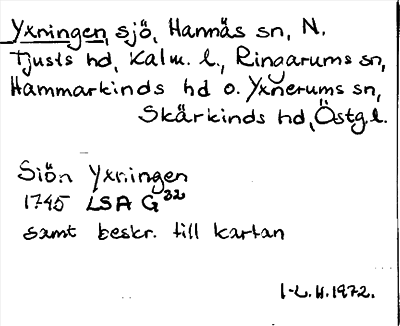 Yxningen, sjö, Hannäs sn, N.
Tjusts hd, Kalm. l., Ringarums sn,
Hammarkinds hd o. Yxnerums sn,
Skärkinds hd, Östg. l.
Siön Yxningen
1745 LSA G³²
samt beskr. till kartan
I-L. H. 1972.